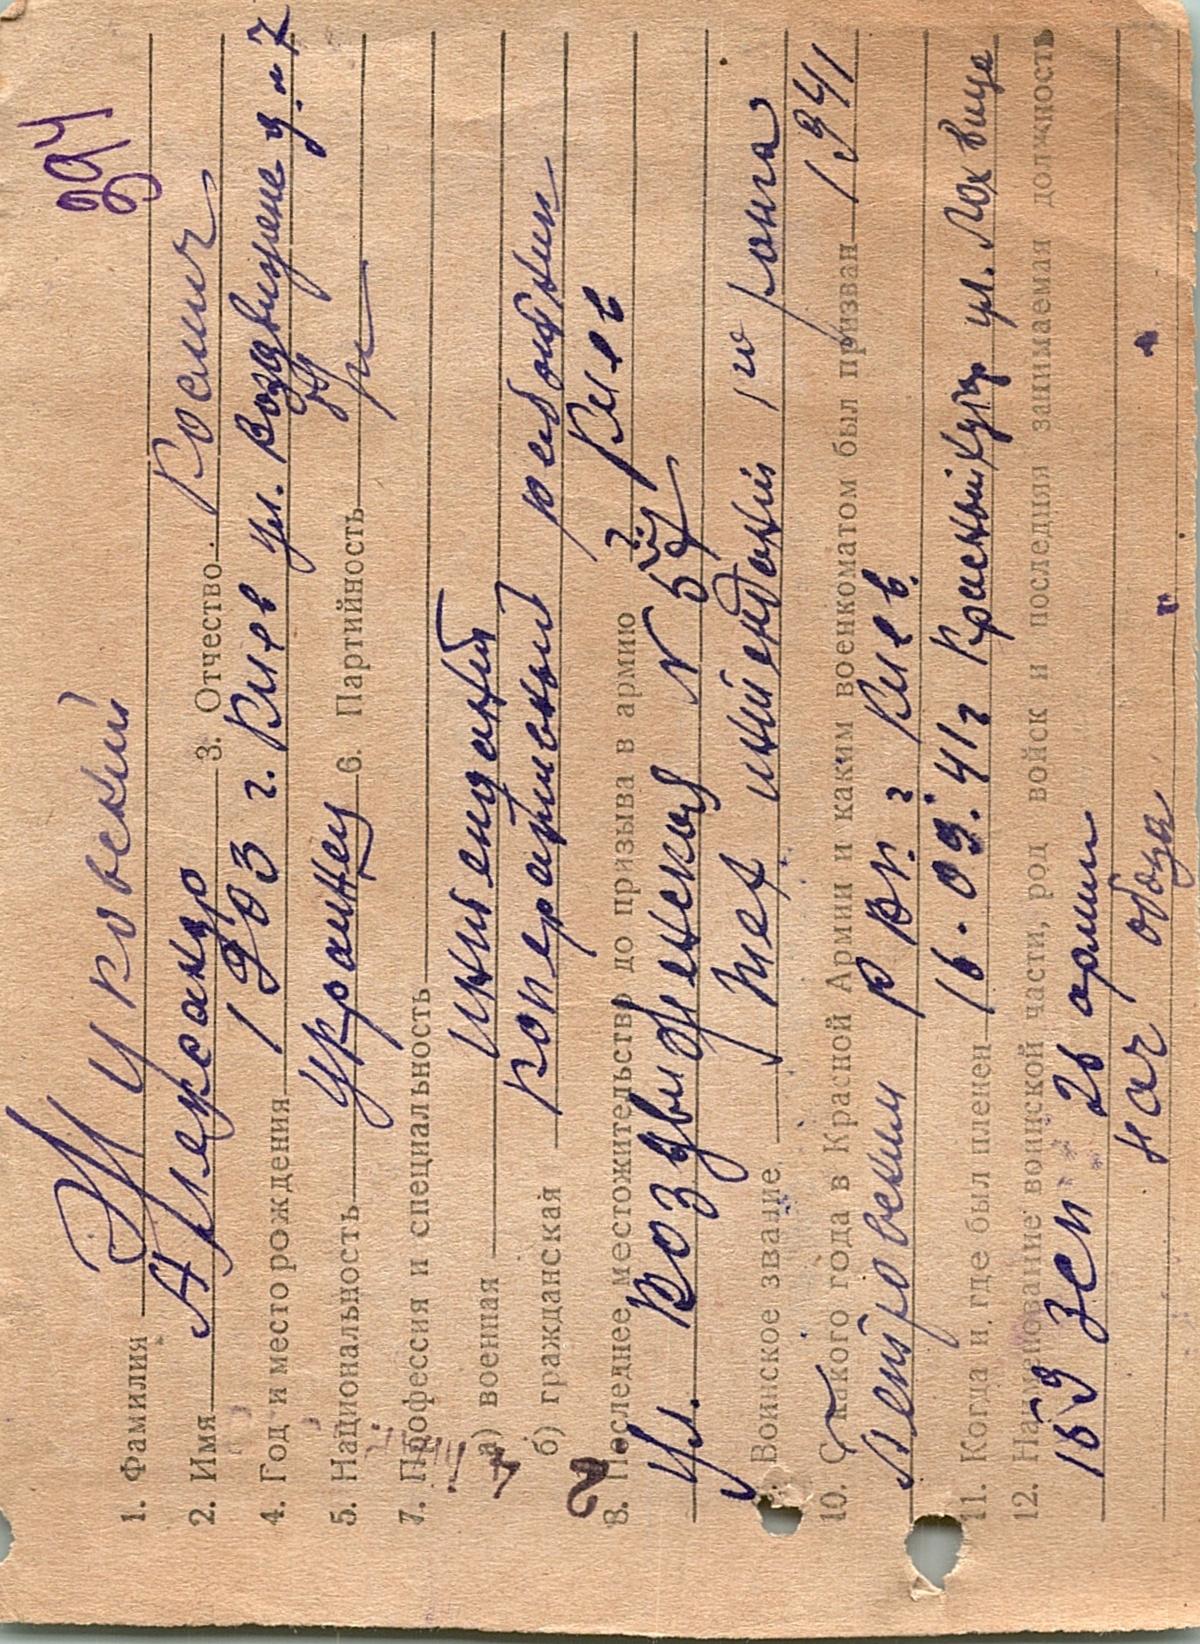 394
1. Фамилия Жуковский
2. Имя Александр 3. Отчество Космич
4. Год и место рождения 1903 г. Киев ул. Воздвижене д. № 7
5. Национальность Украинец 6. Партийность
7. Профессия и специальность
а) военная интендант
б) гражданская коперативный работник
8. Последнее местожительство до призыва в армию г. Киев
ул. Воздвиженская № 57
9. Воинское звание Тех интендант 1го ранга
10. С какого года в Красной Армии и каким военкоматом был призван 1941
Петровским РВК г Киев.
11. Когда и где был пленен 16.09.41г Красный хутор ул. Лохвице
12. Наименование воинской части, род войск и последняя занимаемая должность
169 Зсп 26 армии
нач обоза